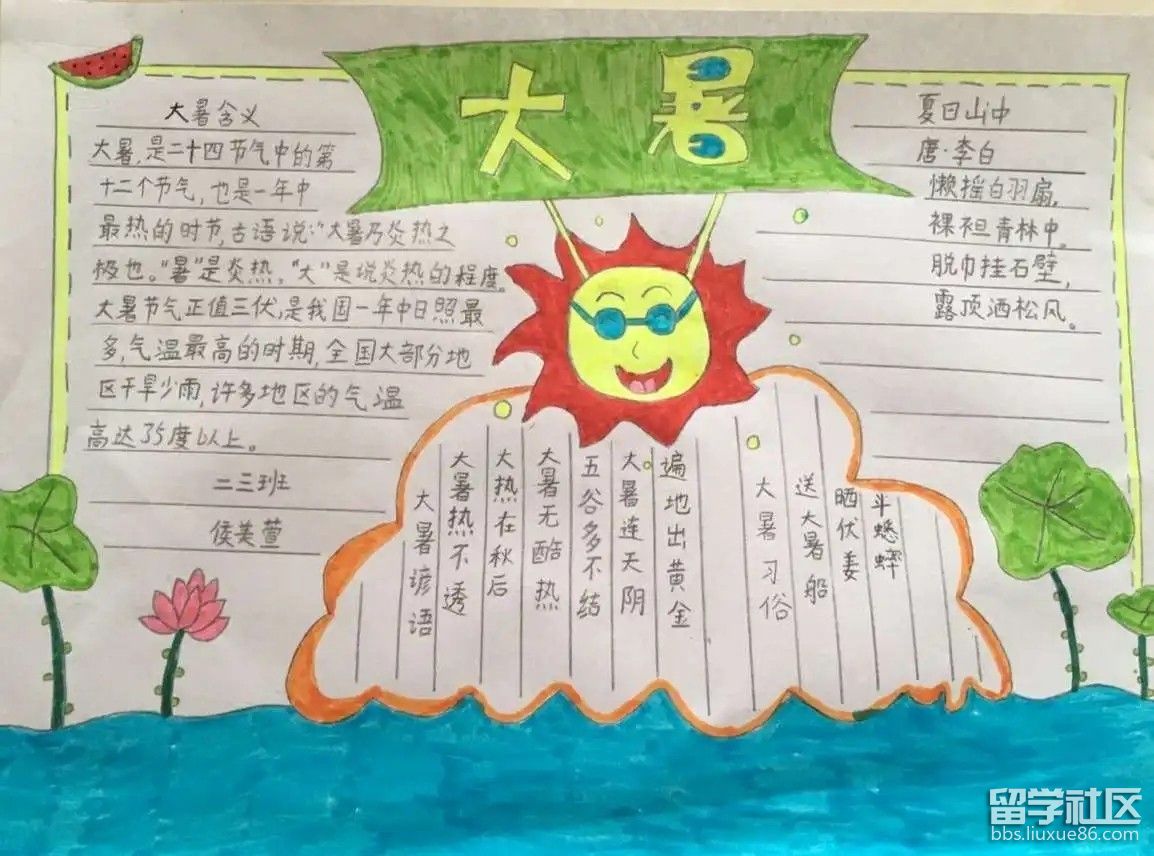 大暑
大暑含义
大暑,是二十四节气中的第
十二个节气,也是一年中
最热的时节,古语说:"大暑乃炎热之
极也。"暑"是炎热,"大"是说炎热的程度。
大暑节气正值三伏,是我国一年中日照最
多,气温最高的时期,全国大部分地
区干旱少雨,许多地区的气温
高达35度以上。
二三班
侯美萱
夏日山中
唐·李白
懒摇白羽扇,
裸袒青林中。
脱巾挂石壁,
露顶洒松风。
大暑谚语
大暑热不透
大热在秋后
大暑无酷热
五谷多不结
大暑连天阴
遍地出黄金
大暑习俗
送大暑船
晒伏姜
斗蟋蟀
留学社区
bbs.liuxue86.com